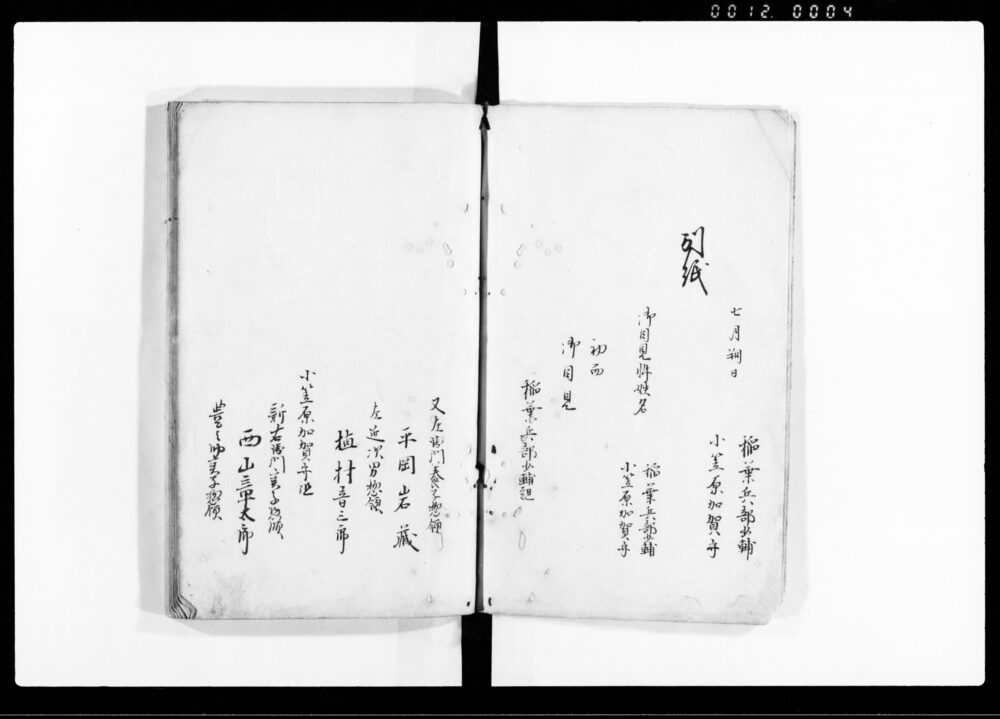 0012.0004
別紙
七月朔日
稲葉兵部少輔
小笠原加賀守
御目見忰姓名
稲葉兵部少輔
小笠原加賀守
初而
御目見
稲葉兵部少輔組
又左衛門養子惣領
平岡岩蔵
左近次男惣領
植村音三郎
小笠原加賀守組
新右衛門実子惣領
西山三郎太郎
実子惣領